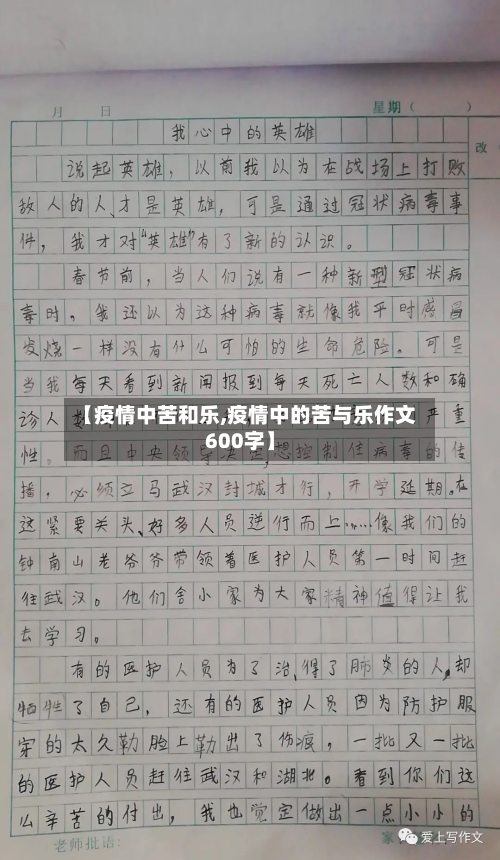 月 日 星期（ ）
改
我心中的英雄
说起英雄，以前我以为在战场上打败
敌人的人，才是英雄，可是通过冠状病毒事
件，我才对“英雄”有了新的认识。
春节前，当人们说有一种新型冠状病
毒时，我还以为这种病毒就像我平时感冒
发烧一样没有什么可怕的生命危险。可是
当我每天看到新闻报到每天死亡人数和确
诊人数 严重
【疫情中苦和乐,疫情中的苦与乐作文
600字】
性。而且中央领导决定,想控制住病毒的传
播，必须立马武汉封城才行，开学延期。在
这紧要关头、好多人员逆行而上……像我们的
钟南山老爷爷带领着医护人员第一时间赶
往武汉。他们舍小家为大家精神值得让我
去学习。
有的医护人员为了治,得了肺炎的人,却
牺牲了自己，还有的医护人员因为防护服
穿的太久勒脸上勒出了伤痕，一批又一批
的医护人员赶往武汉和湖北。看到你们这
么辛苦的付出，我也觉定做出一点小小的
老师批语: 家
爱上写作文